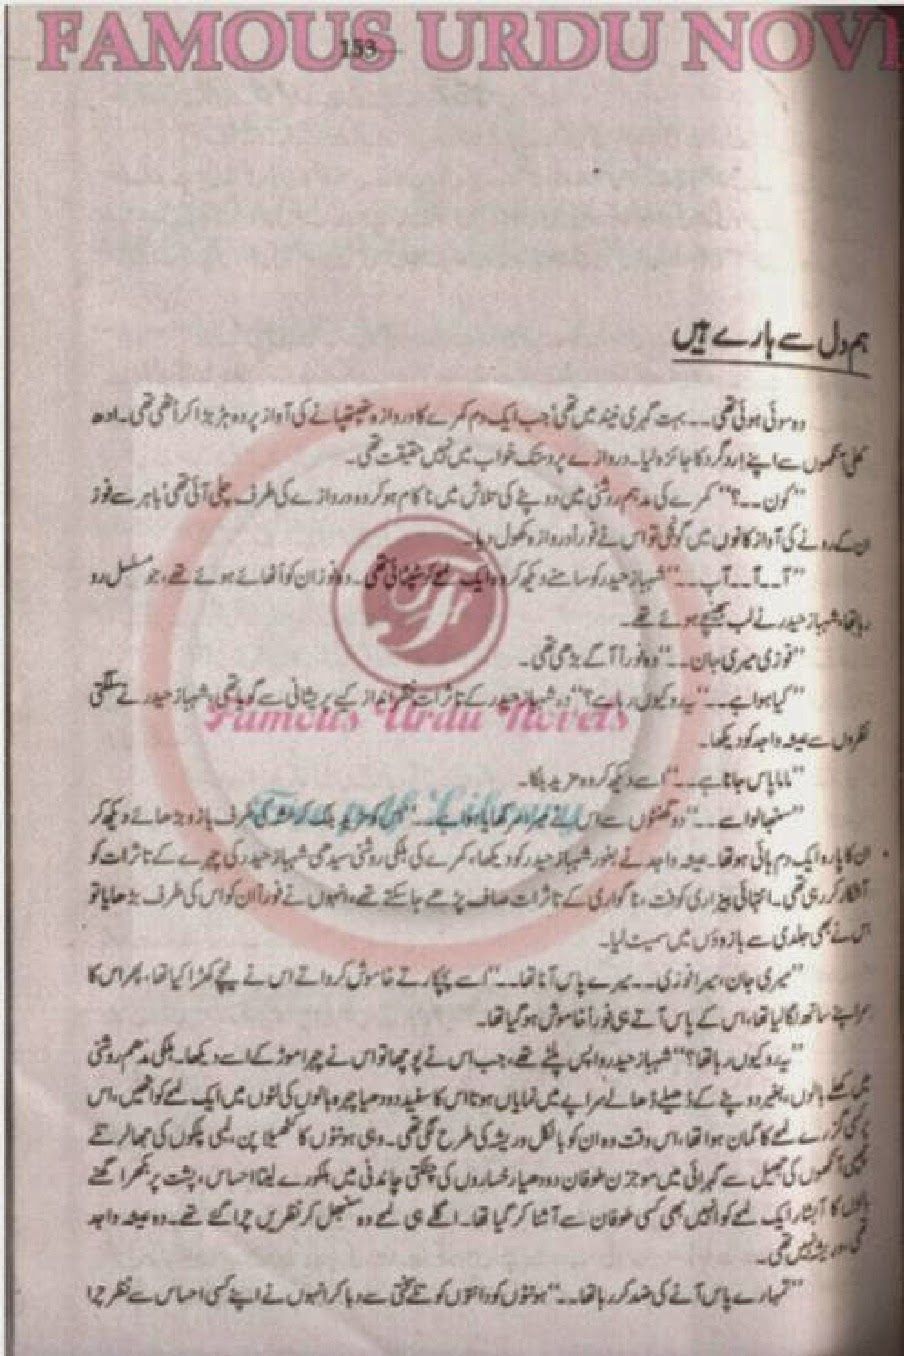 FAMOUS URDU NOVE
153
ہم دل سے ہارے ہیں
وہ سوئی ہوئی تھی۔۔ بہت گہری نیند میں تھی، جب ایک دم کمرے کا دروازہ تھپتھپانے کی آواز پر وہ ہڑبڑا کر اُٹھی تھی۔ ادھ
کھلی آنکھوں سے اپنے اردگرد کا جائزہ لیا۔ دروازے پر دستک خواب میں نہیں حقیقت تھی۔
”کون۔۔؟“ کمرے کی مدہم روشنی میں دوپٹے کی تلاش میں ناکام ہو کر وہ دروازے کی طرف چلی آئی تھی، باہر سے فوز
ان کے رونے کی آواز کانوں میں گونجی تو اس نے فوراً دروازہ کھول دیا۔
”آ۔۔آ۔۔ آپ۔۔“ شہباز حیدر کو سامنے دیکھ کر وہ ایک لمحے کو سٹپٹائی تھی۔ وہ فوزان کو اُٹھائے ہوئے تھے، جو مسلسل رو
رہا تھا، شہباز حیدر نے لب بھینچے ہوئے تھے۔
”فوزی میری جان۔۔“ وہ فوراً آگے بڑھی تھی۔
”کیا ہوا ہے۔۔“ یہ رو کیوں رہا ہے؟“ وہ شہباز حیدر کے تاثرات نظر انداز کیے پریشانی سے گویا تھی، شہباز حیدر نے سلگتی
نظروں سے عیشہ واجد کو دیکھا۔
Famous Urdu Novels
”ماما پاس جانا ہے۔۔“ اسے دیکھ کر وہ مزید بلکا۔
”سنبھالو اسے۔۔“ دو گھنٹوں سے اس نے میرا سر کھایا ہوا ہے۔۔“ کو مزید بلک کر عیشہ کی طرف بازو بڑھائے دیکھ کر
Free pdf Library
ان کا پارہ ایک دم ہائی ہو تھا۔ عیشہ واجد نے بغور شہباز حیدر کو دیکھا، کمرے کی ہلکی روشنی سیدھی شہباز حیدر کی چہرے کے تاثرات کو
آشکار کر رہی تھی۔ انتہائی بیزاری کوفت، ناگواری کے تاثرات صاف پڑھے جا سکتے تھے، انہوں نے فوراً ان کو اس کی طرف بڑھایا تو
اس نے بھی جلدی سے بازوؤں میں سمیٹ لیا۔
”میری جان، میرا فوزی۔۔ میرے پاس آنا تھا۔۔“ اسے پچکارتے خاموش کرواتے اس نے نیچے کھڑا کیا تھا، پھر اس کا
سر اپنے ساتھ لگا لیا تھا، اس کے پاس آتے ہی فوراً خاموش ہو گیا تھا۔
”یہ رو کیوں رہا تھا؟“ شہباز حیدر واپس پلٹے تھے، جب اس نے پوچھا تو اس نے چہرا موڑ کے اسے دیکھا۔ ہلکی مدھم روشنی
میں کھلے بالوں، بغیر دوپٹے کے ڈھیلے ڈھالے سراپے میں نمایاں ہوتا اس کا سفید دودھیا چہرہ بالوں کی لٹوں میں ایک لمحے کو انہیں، اس
پر کسی گزرے لمحے کا گمان ہوا تھا، اس وقت وہ ان کو بالکل وریشہ کی طرح لگی تھی۔ وہی ہونٹوں کا کٹیلا پن، لمبی پلکوں کی جھالر تلے
چھپی آنکھوں کی جھیل سے گہرائی میں موجزن طوفان دودھیا رخساروں کی چمکتی چاندنی میں ہلکورے لیتا احساس، پشت پر بکھرا گھنے
بالوں کا آبشار ایک لمحے کو انہیں بھی کسی طوفان سے آشنا کر گیا تھا۔ اگلے ہی لمحے وہ سنبھل کر نظریں چرا گئے تھے۔ وہ عیشہ واجد
تھی وریشہ نہیں تھی۔
”تمہارے پاس آنے کی ضد کر رہا تھا۔۔“ ہونٹوں کو دانتوں کو تلے سختی سے دبا کر انہوں نے اپنے کسی احساس سے نظر چرا